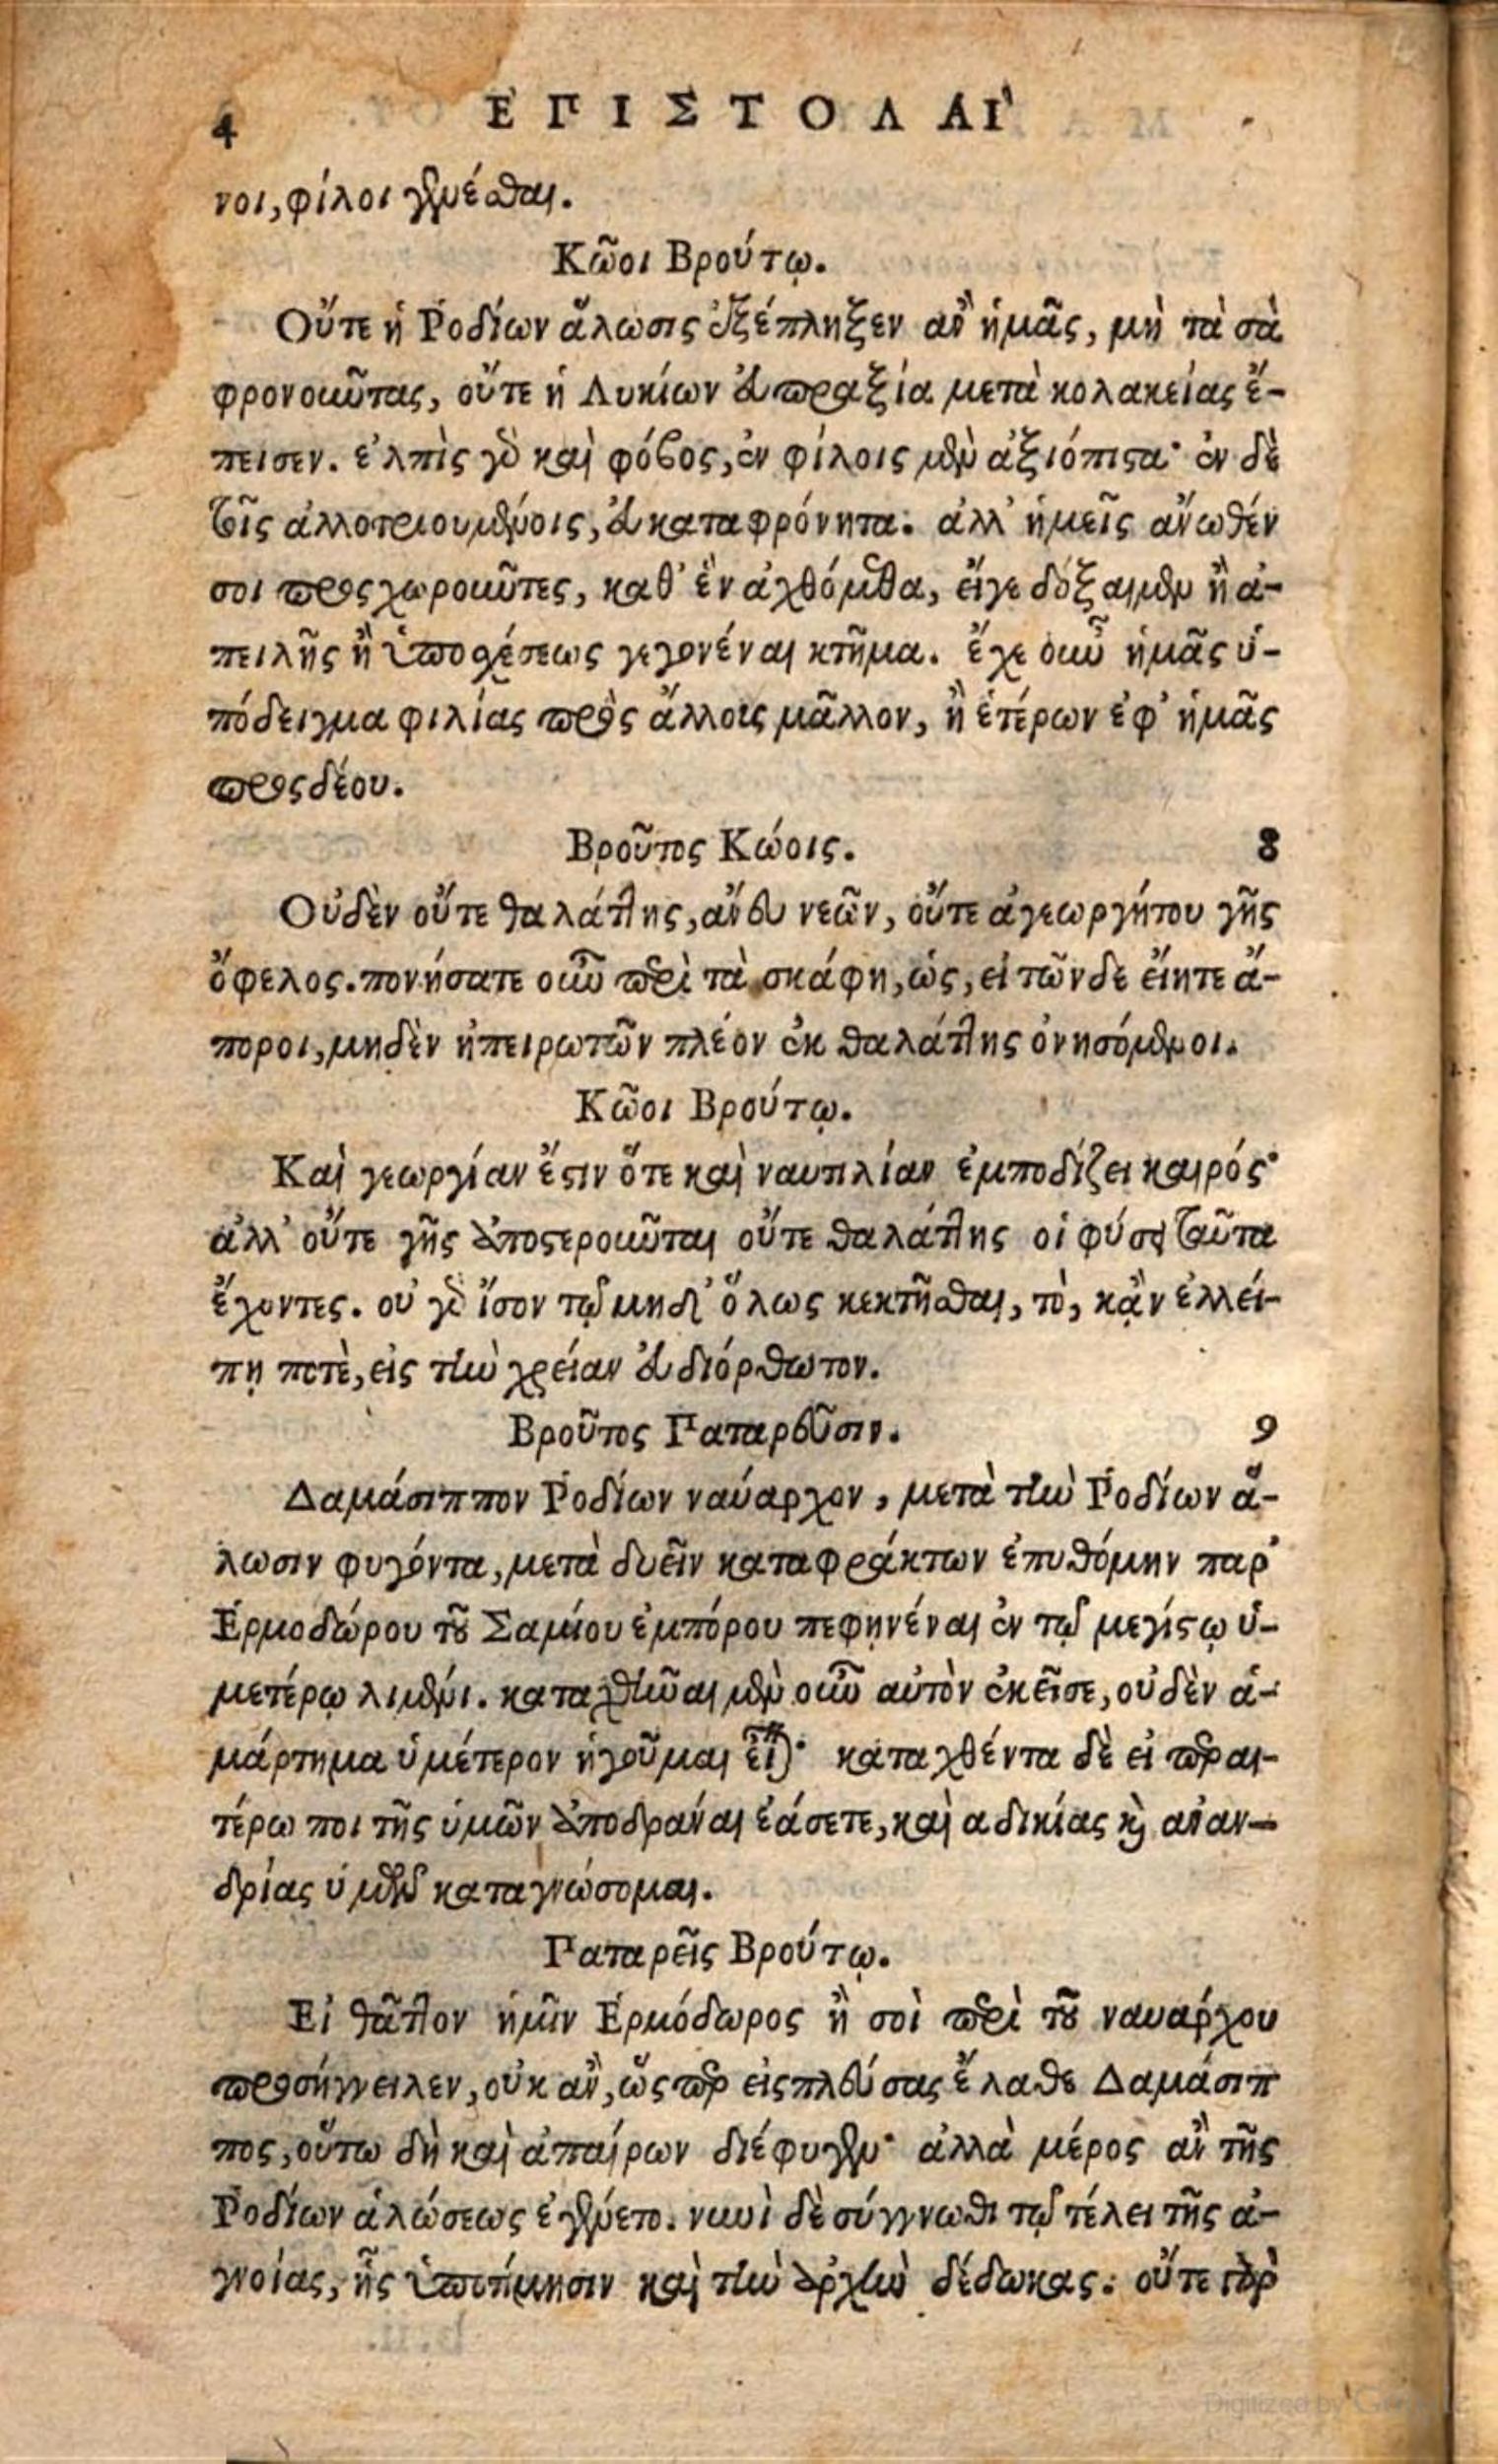 4 ἘΠΙΣΤΟΛΑῚ
νοι, φίλοι γενέσθαι.
Κῶοι Βρούτῳ.
Οὔτε ἡ Ῥοδίων ἅλωσις ἐξέπληξεν ἂν ἡμᾶς, μὴ τὰ σὰ
φρονοῦντας, οὔτε ἡ Λυκίων ἀπραξία μετὰ κολακείας ἔ-
πεισεν. ἐλπὶς γὸ καὶ φόβος, ἐν φίλοις μὲν ἀξιόπιστα· ἐν δὲ
τοῖς ἀλλοτριουμένοις, ἀκαταφρόνητα. ἀλλ' ἡμεῖς ἄνωθέν
σοι προςχωροῦντες, καθ' ἓν ἀχθόμεθα, εἴγε δόξαιμεν ἢ ἀ-
πειλῆς ἢ ὑποσχέσεως γεγονέναι κτῆμα. ἔχε οὖν ἡμᾶς ὑ-
πόδειγμα φιλίας πρὸς ἄλλοις μᾶλλον, ἢ ἑτέρων ἐφ' ἡμᾶς
προςδέου.
Βροῦτος Κώοις. 8
Οὐδὲν οὔτε θαλάττης, ἄνευ νεῶν, οὔτε ἀγεωργήτου γῆς
ὄφελος. πονήσατε οὖν περὶ τὰ σκάφη, ὡς, εἰ τῶνδε εἴητε ἄ-
ποροι, μηδὲν ἠπειρωτῶν πλέον ἐκ θαλάττης ὀνησόμενοι.
Κῶοι Βρούτῳ.
Καὶ γεωργίαν ἔστιν ὅτε καὶ ναυτιλίαν ἐμποδίζει καιρός·
ἀλλ' οὔτε γῆς ἀποστεροῦνται οὔτε θαλάττης οἱ φύσει ταῦτα
ἔχοντες. οὐ γὸ ἴσον τῷ μηδ' ὅλως κεκτῆσθαι, τὸ, κᾂν ἐλλεί-
πῃ ποτὲ, εἰς τὴν χρείαν ἀδιόρθωτον.
Βροῦτος Παταρεῦσιν. 9
Δαμάσιππον Ῥοδίων ναύαρχον, μετὰ τὴν Ῥοδίων ἅ-
λωσιν φυγόντα, μετὰ δυεῖν καταφράκτων ἐπυθόμην παρ'
Ἑρμοδώρου τοῦ Σαμίου ἐμπόρου πεφηνέναι ἐν τῷ μεγίστῳ ὑ-
μετέρῳ λιμένι. καταχθῆναι μὲν οὖν αὐτὸν ἐκεῖσε, οὐδὲν ἁ-
μάρτημα ὑμέτερον ἡγοῦμαι εἶναι· καταχθέντα δὲ εἰ περαι-
τέρω ποι τῆς ὑμῶν ἀποδρᾶναι ἐάσετε, καὶ ἀδικίας καὶ ἀναν-
δρίας ὑμῶν καταγνώσομαι.
Παταρεῖς Βρούτῳ.
Εἰ θᾶττον ἡμῖν Ἑρμόδωρος ἢ σοὶ περὶ τοῦ ναυάρχου
προσήγγειλεν, οὐκ ἂν, ὥςπερ εἰςπλεύσας ἔλαθε Δαμάσιπ
πος, οὕτω δὴ καὶ ἀπαίρων διέφυγεν· ἀλλὰ μέρος ἂν τῆς
Ῥοδίων ἁλώσεως ἐγένετο. νυνὶ δὲ σύγγνωθι τῷ τέλει τῆς ἀ-
γνοίας, ἧς ὑποτίμησιν καὶ τὴν ἀρχὴν δέδωκας. οὔτε γὰρ